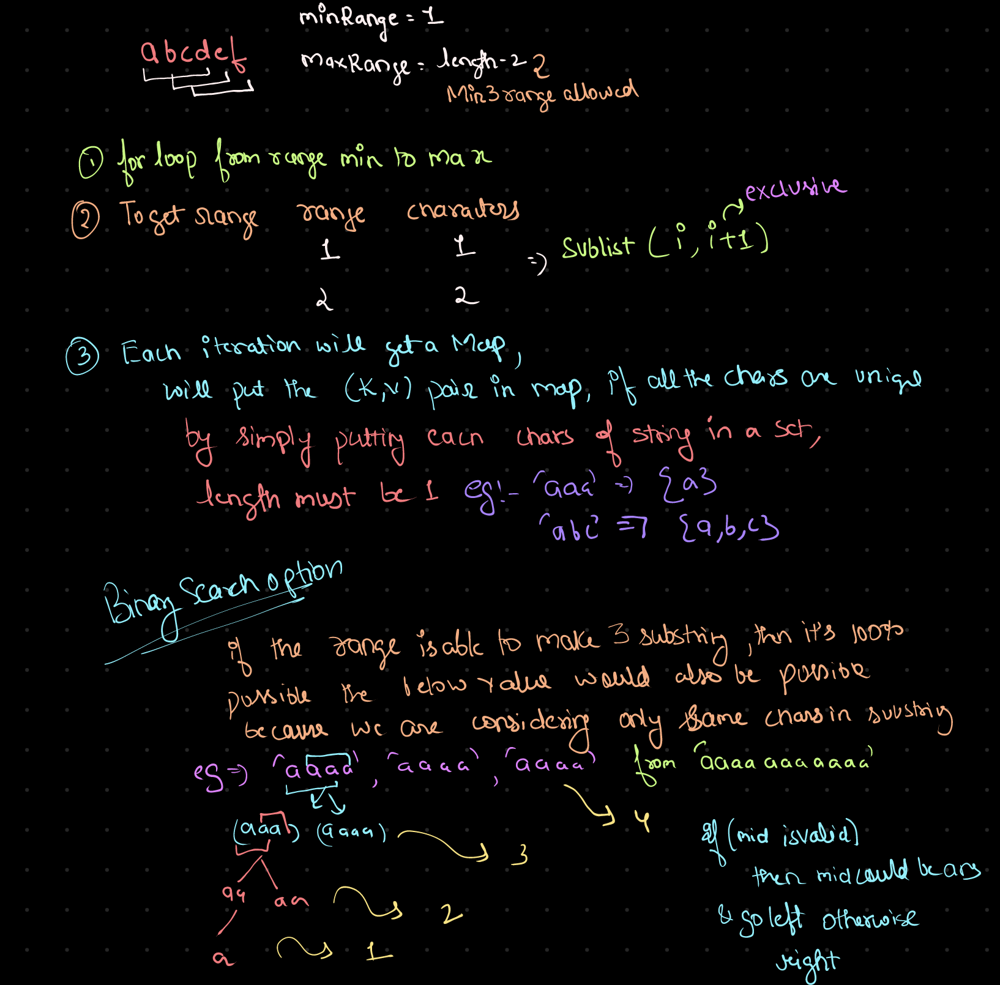 minRange = 1
abcdef
maxRange = length - 2 2
Min 3 range allowed
① for loop from range min to max
② To get range range characters
exclusive
1 1 => Sublist (i, i+1)
2 2
③ Each iteration will get a Map,
will put the (K,V) pair in map, if all the chars are unique
by simply putting each chars of string in a set,
length must be 1 eg:- 'aaa' => {a}
'abc' => {a,b,c}
Binary Search option
if the range is able to make 3 substring, then it's 100%
possible the below value would also be possible
because we are considering only same chars in substring
eg => 'aaaa', 'aaaa', 'aaaa' from 'aaaaaaaaaaaa'
(aaa) (aaaa) 3 4
aa aa 2
a 1
if (mid isvalid)
then mid could be ans
& go left otherwise
right